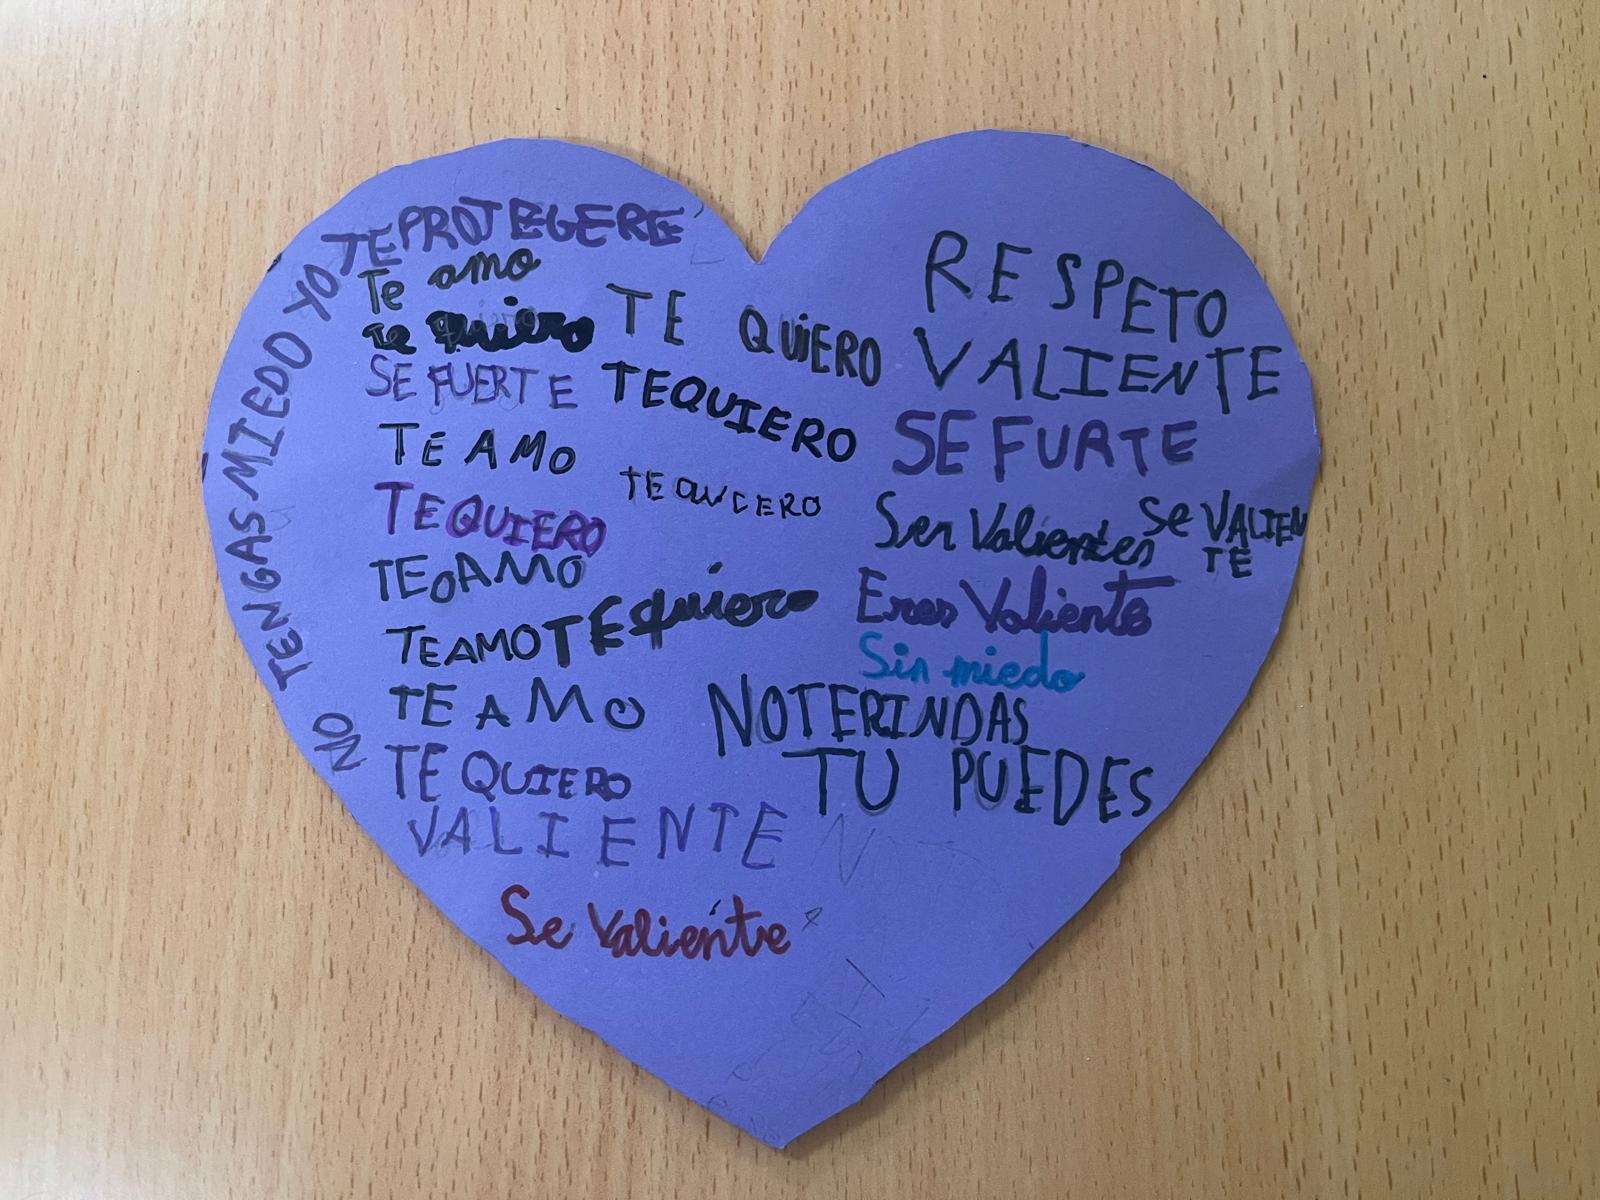 NO TENGAS MIEDO YO TE PROTEGERÉ
Te amo
te quiero
SE FUERTE
TE AMO
TEQUIERO
TEOAMO
TEAMO
TE AMO
TE QUIERO
VALIENTE
Se Valiente
TE QUIERO
TEQUIERO
TE quiero
RESPETO
VALIENTE
SE FURTE
Ser Valientes
Se VALIEN
TE
Eres Valiente
Sin miedo
NOTERINDAS
TU PUEDES